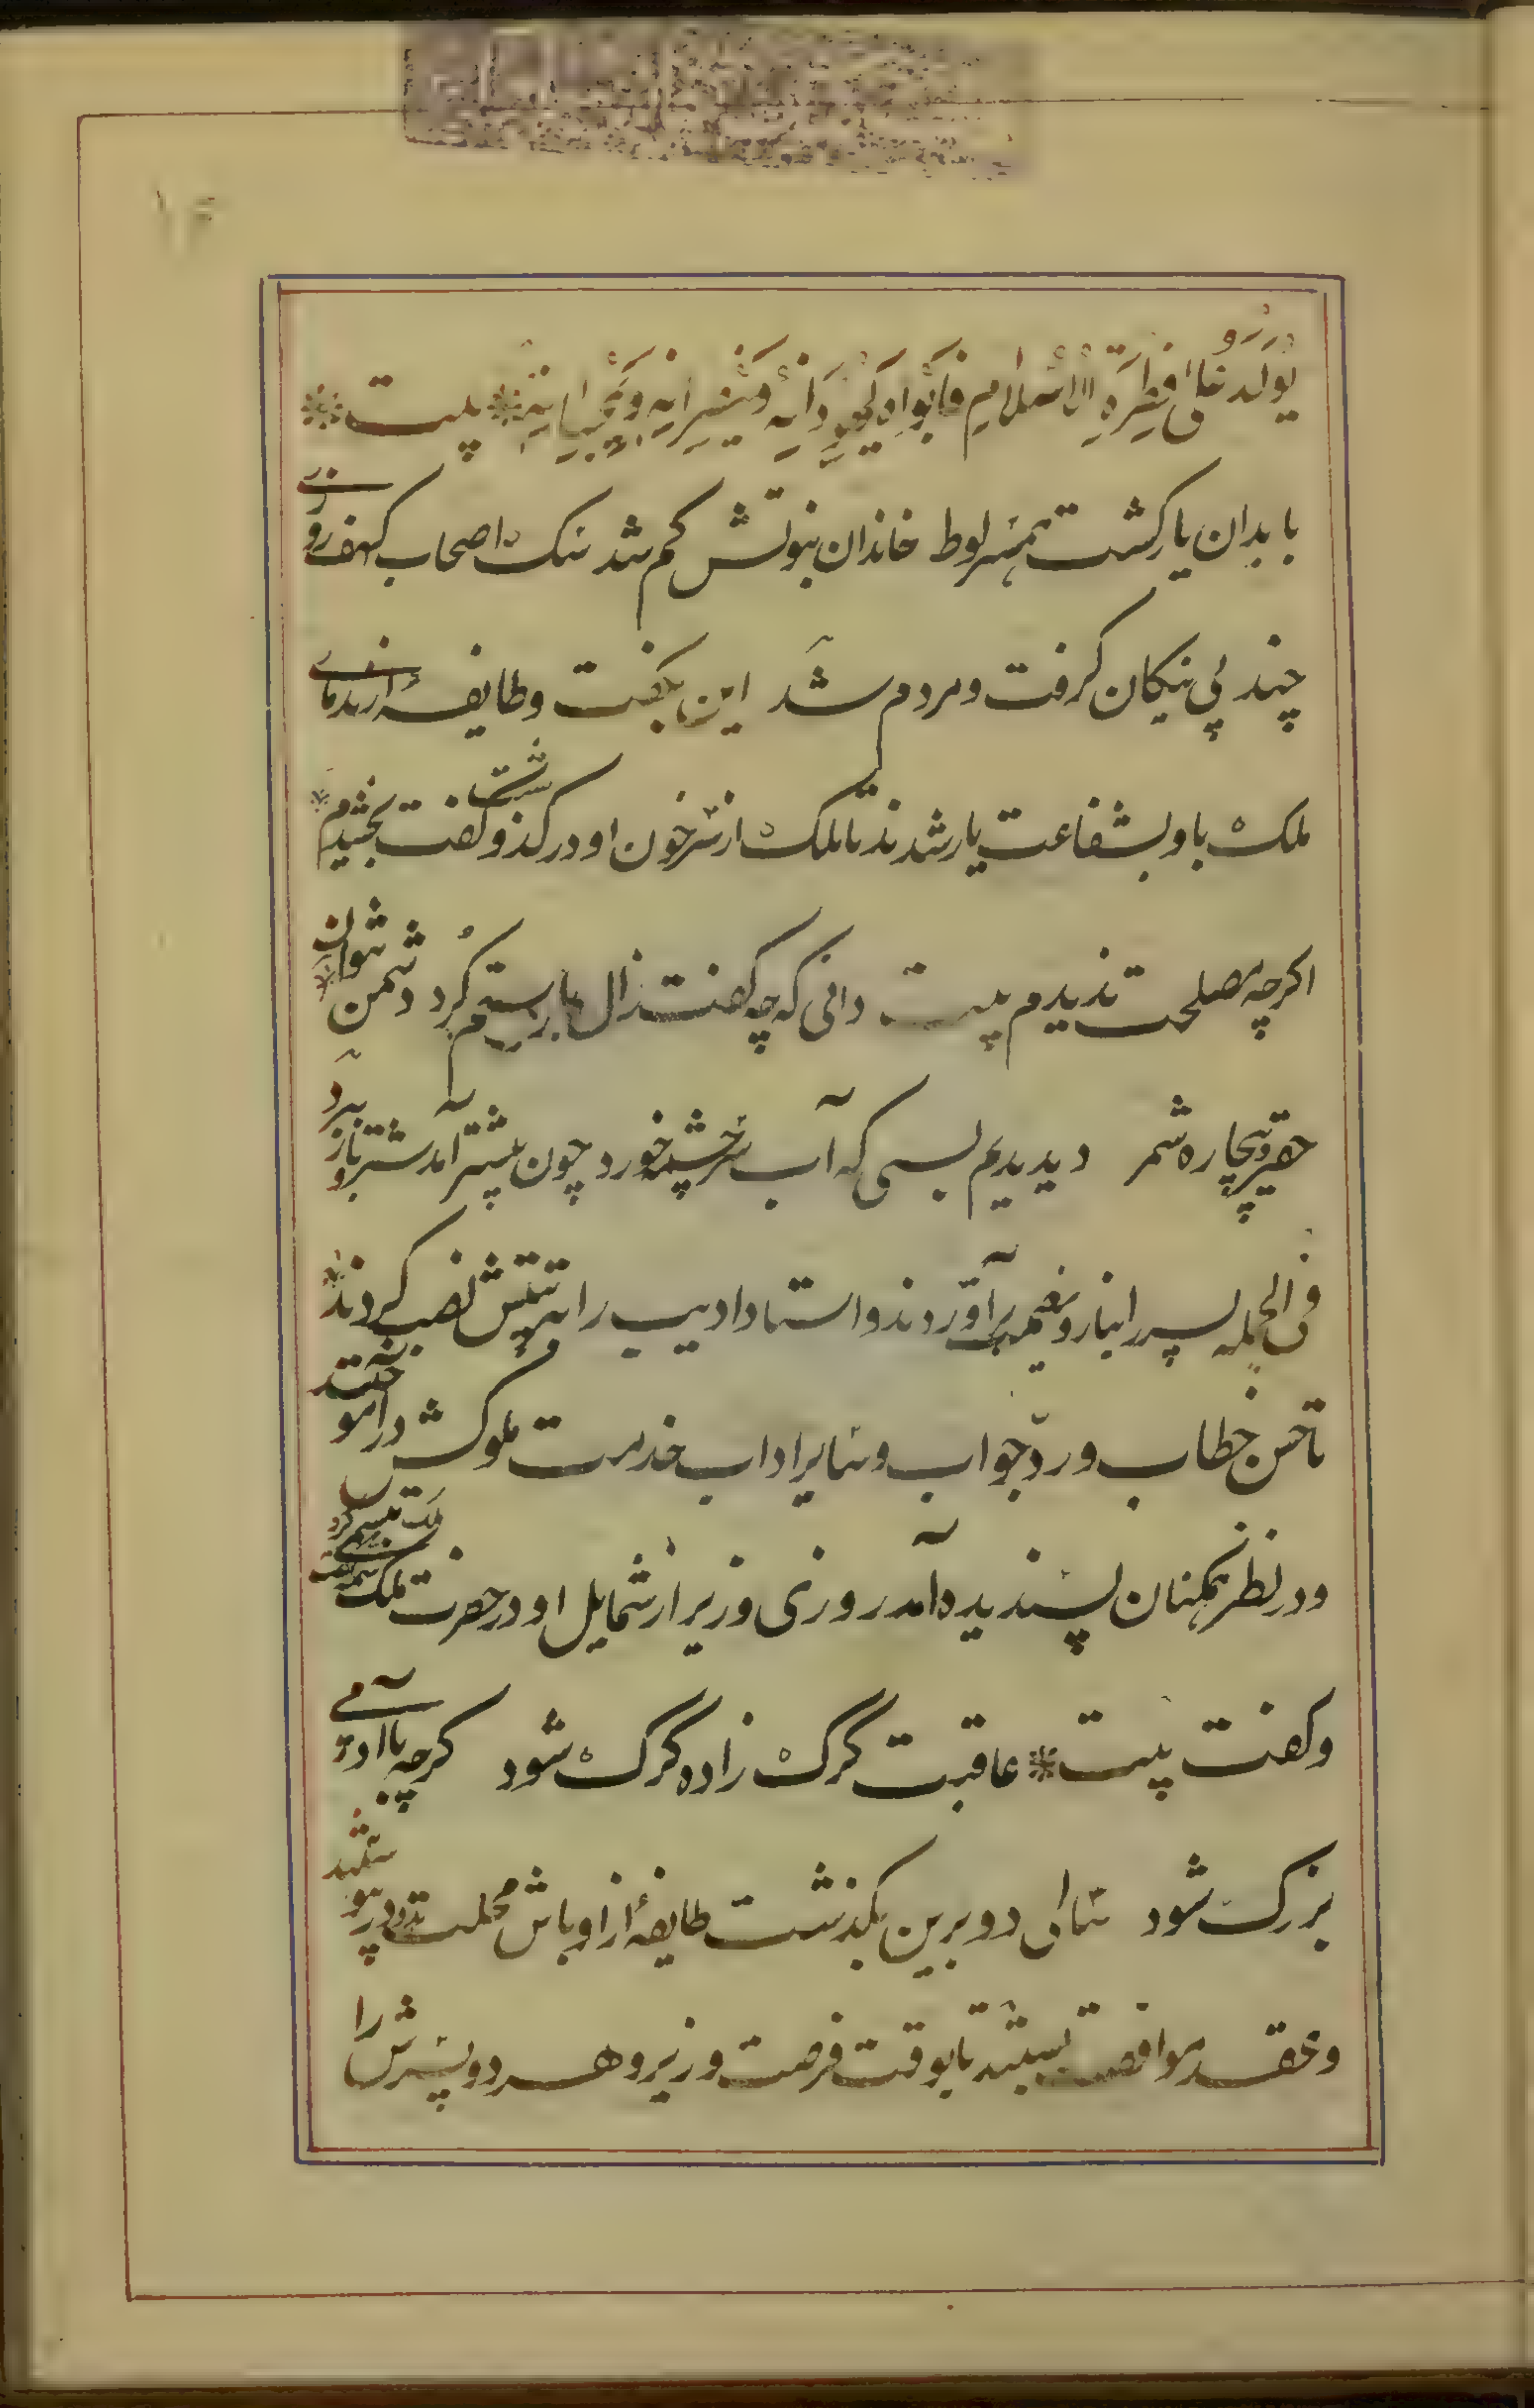 ۱۴
يُولَدُ عَلَى فِطْرَةِ الْاِسْلَامِ فَاَبَوَاهُ يُهَوِّدَانِهِ وَيُنَصِّرَانِهِ وَيُمَجِّسَانِهِ بیت
با بدان یار کشت همسر لوط خاندان نبوتش کم شد سک اصحاب کهف روزی
چند پی نیکان کرفت و مردم شد این بکفت و طایفهٔ از ندمای
ملک با او بشفاعت یار شدند تا ملک از سر خون او درکذشت و کفت بخشیدم
اکرچه مصلحت ندیدم بیت دانی که چه کفت زال با رستم کُرد دشمن نتوان
حقیر و بیچاره شمرد دیدیم بسی که آب سرچشمه خورد چون بیشتر آمد شتر و بار ببرد
فی الجمله پسر را بناز و نعمت برآوردند و استاد ادیب را بتربیتش نصب کردند
تا حسن خطاب و ردّ جواب و سایر اداب خدمت ملوکش درآموختند
و در نظر همکنان پسندیده آمد روزی وزیر از شمایل او در حضرت ملک شمه‌ای میکفت ملک تبسم کرد
و کفت بیت عاقبت گرگ زاده گرگ شود کرچه با آدمی
بزرک شود سالی دو برین بکذشت طایفهٔ از اوباش محلت بدو در پیوستند
و عقد موافقت ببستند تا بوقت فرصت وزیر و هر دو پسرش را